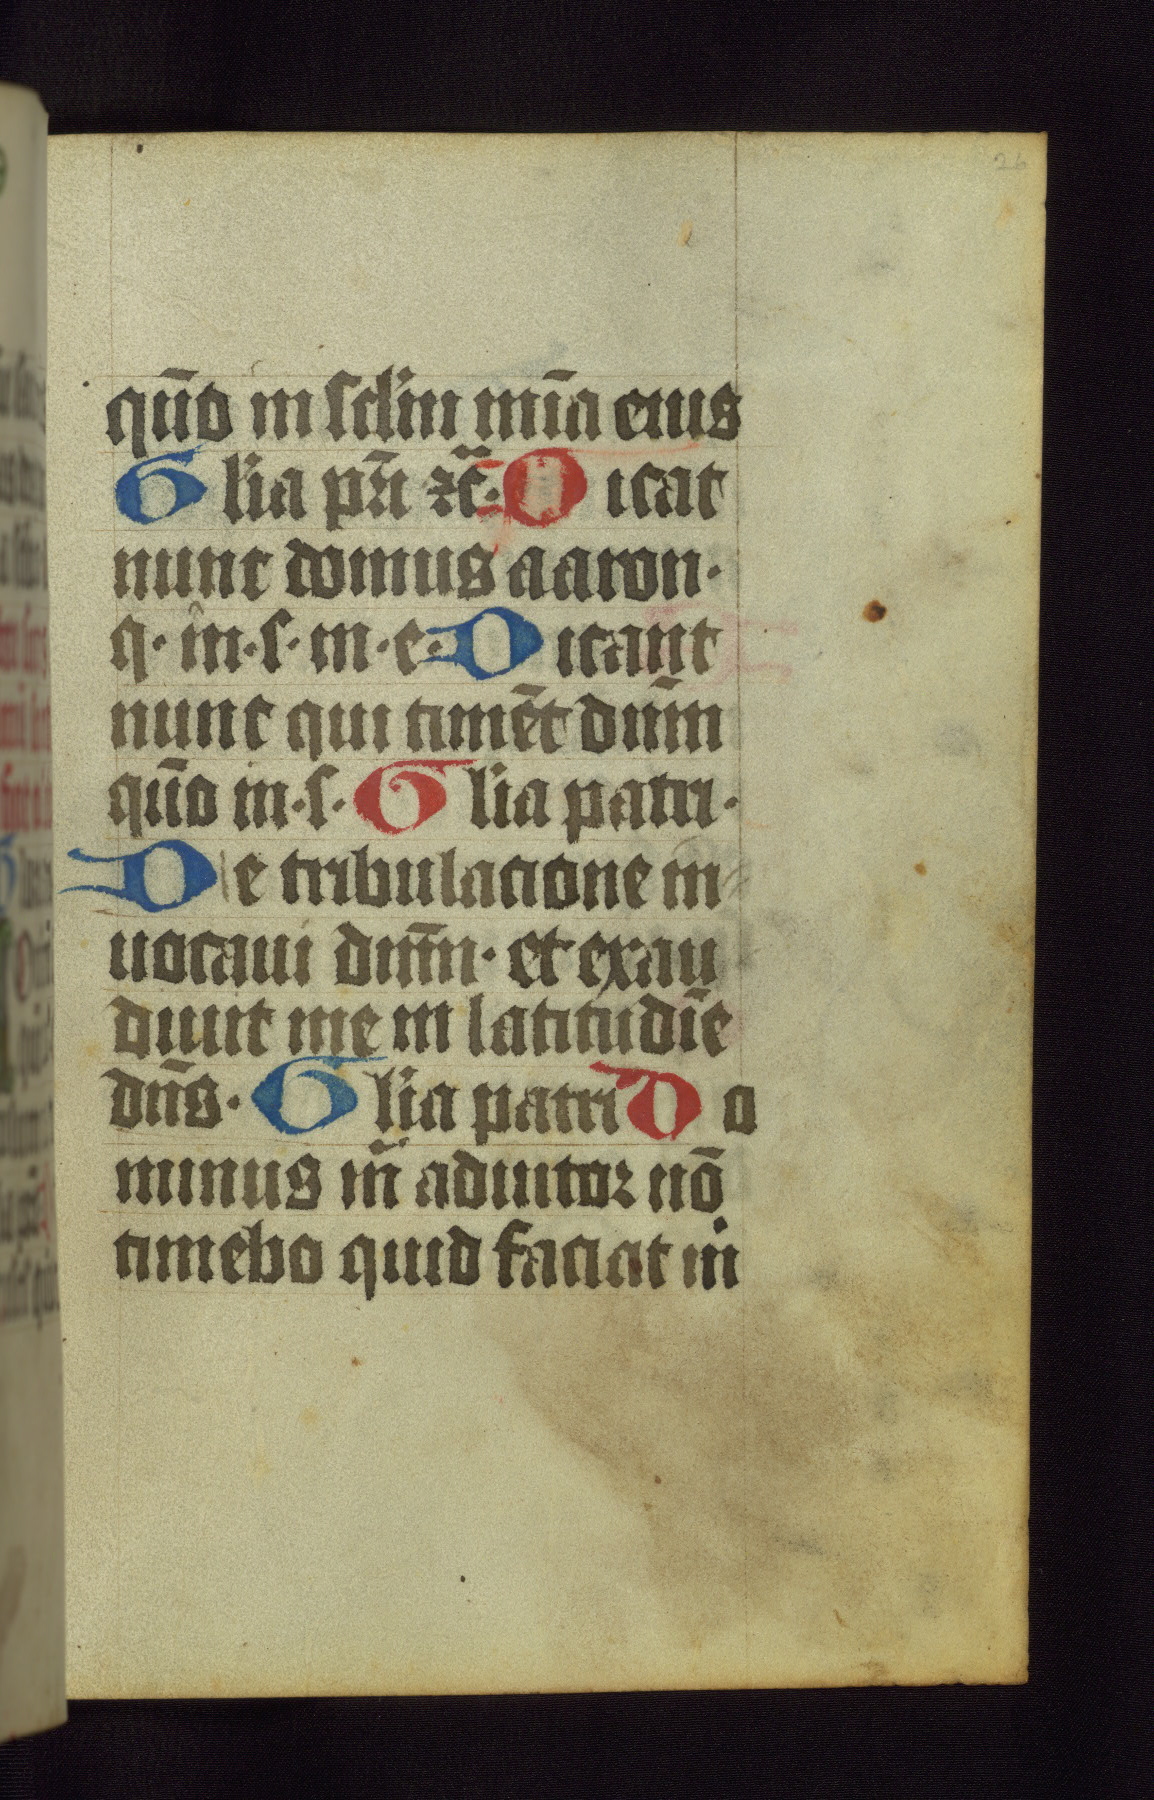 26
qūo in sclm mīa eius
Glia pr̄i ⁊c̄· Dicat
nunc domus aaron·
q· in·s·m·e· Dicant
nunc qui timēt dnm̄
qūo in·s· Glia patri·
De tribulatione in
uocaui dnm̄· et exau
diuit me in latitudīe
dn̄s· Glia patri Do
minus m̄ adiutor nō
timebo quid faciat m̄